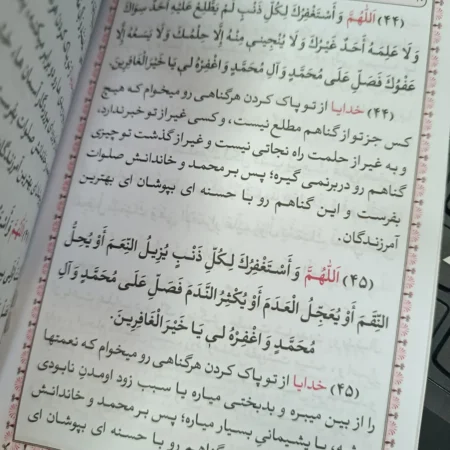 (۴۴) اَللّٰهُمَّ وَ أَسْتَغْفِرُكَ لِكُلِّ ذَنْبٍ لَمْ يَطَّلِعْ عَلَيْهِ أَحَدٌ سِوَاكَ
وَ لَا عَلِمَهُ أَحَدٌ غَيْرُكَ وَ لَا يُنْجِينِي مِنْهُ إِلَّا حِلْمُكَ وَ لَا يَسَعُهُ إِلَّا
عَفْوُكَ فَصَلِّ عَلَى مُحَمَّدٍ وَ آلِ مُحَمَّدٍ وَ اغْفِرْهُ لِي يَا خَيْرَ الْغَافِرِينَ.
(۴۴) خدایا از تو پاک کردن هرگناهی رو میخوام که هیچ
کس جز تو از گناهم مطلع نیست، و کسی غیر از تو خبر نداره،
و به غیر از حلمت راه نجاتی نیست و غیر از گذشت تو چیزی
گناهم رو دربرنمی گیره؛ پس بر محمد و خاندانش صلوات
بفرست و این گناهم رو با حسنه ای بپوشان ای بهترین
آمرزندگان.
(۴۵) اَللّٰهُمَّ وَ أَسْتَغْفِرُكَ لِكُلِّ ذَنْبٍ يُزِيلُ النِّعَمَ أَوْ يُحِلُّ
النِّقَمَ أَوْ يُعَجِّلُ الْعَدَمَ أَوْ يُكْثِرُ النَّدَمَ فَصَلِّ عَلَى مُحَمَّدٍ وَ آلِ
مُحَمَّدٍ وَ اغْفِرْهُ لِي يَا خَيْرَ الْغَافِرِينَ.
(۴۵) خدایا از تو پاک کردن هرگناهی رو میخوام که نعمتها
را از بین میبره و بدبختی میاره یا سبب زود اومدن نابودی
میشه، یا پشیمانی بسیار میاره؛ پس بر محمد و خاندانش
گناهم رو با حسنه ای بپوشان ای